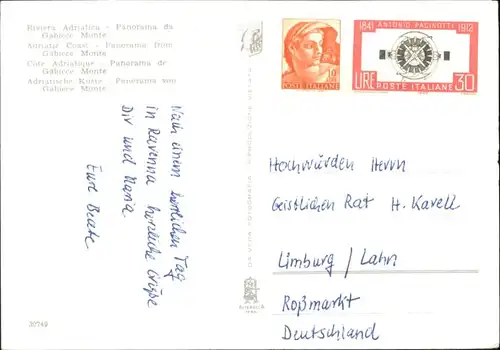 Riviera Adriatica - Panorama da
Gabicce Monte
Adriatic Coast - Panorama from
Gabicce Monte
Côte Adriatique - Panorama de
Gabicce Monte
Adriatische Küste - Panorama von
Gabicce Monte
Nach einem herrlichen Tag
in Ravenna herzliche Grüße
Dir und Maria
Eure Beate
30249
10
POSTE ITALIANE
1841 ANTONIO PACINOTTI 1912
LIRE POSTE ITALIANE 30
Hochwürden Herrn
Geistlichen Rat H. Karell
Limburg / Lahn
Roßmarkt
Deutschland